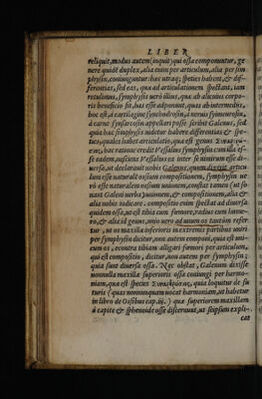 LIBER
reliquit, modus autem (inquit) quo ossa componuntur, ge
nere quidē duplex, alia enim per articulum, alia per sym
physin, coniunguntur: hæc utraq; species habent, & dif-
ferentias, sed eas, quæ ad articulationem spectant, iam
retulimus, symphysis uero illius, quæ ab alicuius corpo-
ris beneficio fit, has esse adponunt, quas ab intermedijs,
hoc est, à cartilagine synchondrosin, à neruis synneurosin,
à carne syssarcosin appellari posse scribit Galenus, sed
quia hæc symphysis uidetur habere differentias & spe-
cies, quales
hac ratione credit Vessalius symphysim cum illa es-
se eadem, Vessalius ea inter se nimirum esse di-
uersa, ut declarauit nobis Galenus, quum dixerit articu
lum esse naturalē ossium compositionem, symphysin ue
rò esse naturalem ossium unionem, constat tamen
max Galeni uerba unionem, & compositionem, alia &
alia nobis indicare. compositio enim spectat ad diuersa
quidem ossa, ut est tibia cum femore, radius cum hume-
ro, & alia id genus, unio uero ad unum os tantum refer
tur, ut os maxillæ inferioris in extremis partibus uniri
per symphysin dicitur, non autem componi, quia est uni-
cum os, econtra tibiam alligari femori per articulum,
qui est compositio, dicitur, non autem per symphysin;
quia sunt diuersa ossa. Nec obstat, Galenum dixisse
nonnulla maxillæ superioris ossa coniungi per harmo-
niam, quæ est species loquitur de su
turis (quas nonnunquam uocat harmoniam, ut habetur
in libro de Ossibus cap. iij.) quæ superiorem maxillam
à capite & sphenoide osse discernunt, ut seipsum expli-
cat